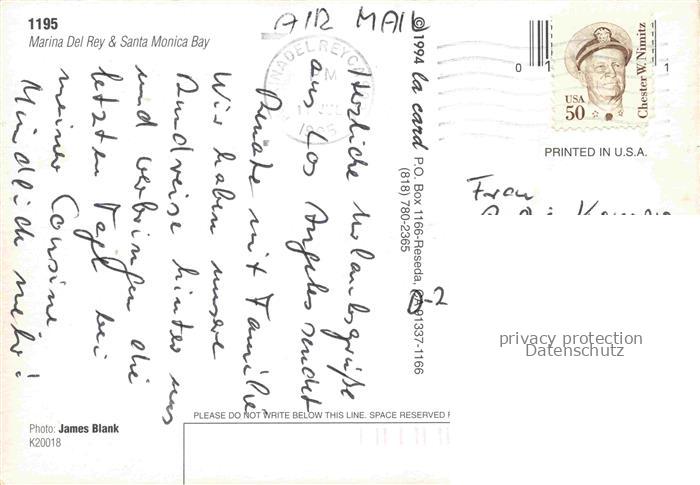 1195
Marina Del Rey & Santa Monica Bay
AIR MAIL
Herzliche Urlaubsgrüße
aus Los Angeles sendet
Renate mit Familie.
Wir haben unsere
Rundreise hinter uns
und verbringen die
letzten Tage bei
meiner Cousine
Mündlich mehr!
© 1994 la card P.O. Box 1166-Reseda, CA 91337-1166
(818) 780-2365
MARINA DEL REY CA
PM
1995
0 1 1
USA
50
Chester W. Nimitz
PRINTED IN U.S.A.
Frau
privacy protection
Datenschutz
PLEASE DO NOT WRITE BELOW THIS LINE. SPACE RESERVED F
Photo: James Blank
K20018